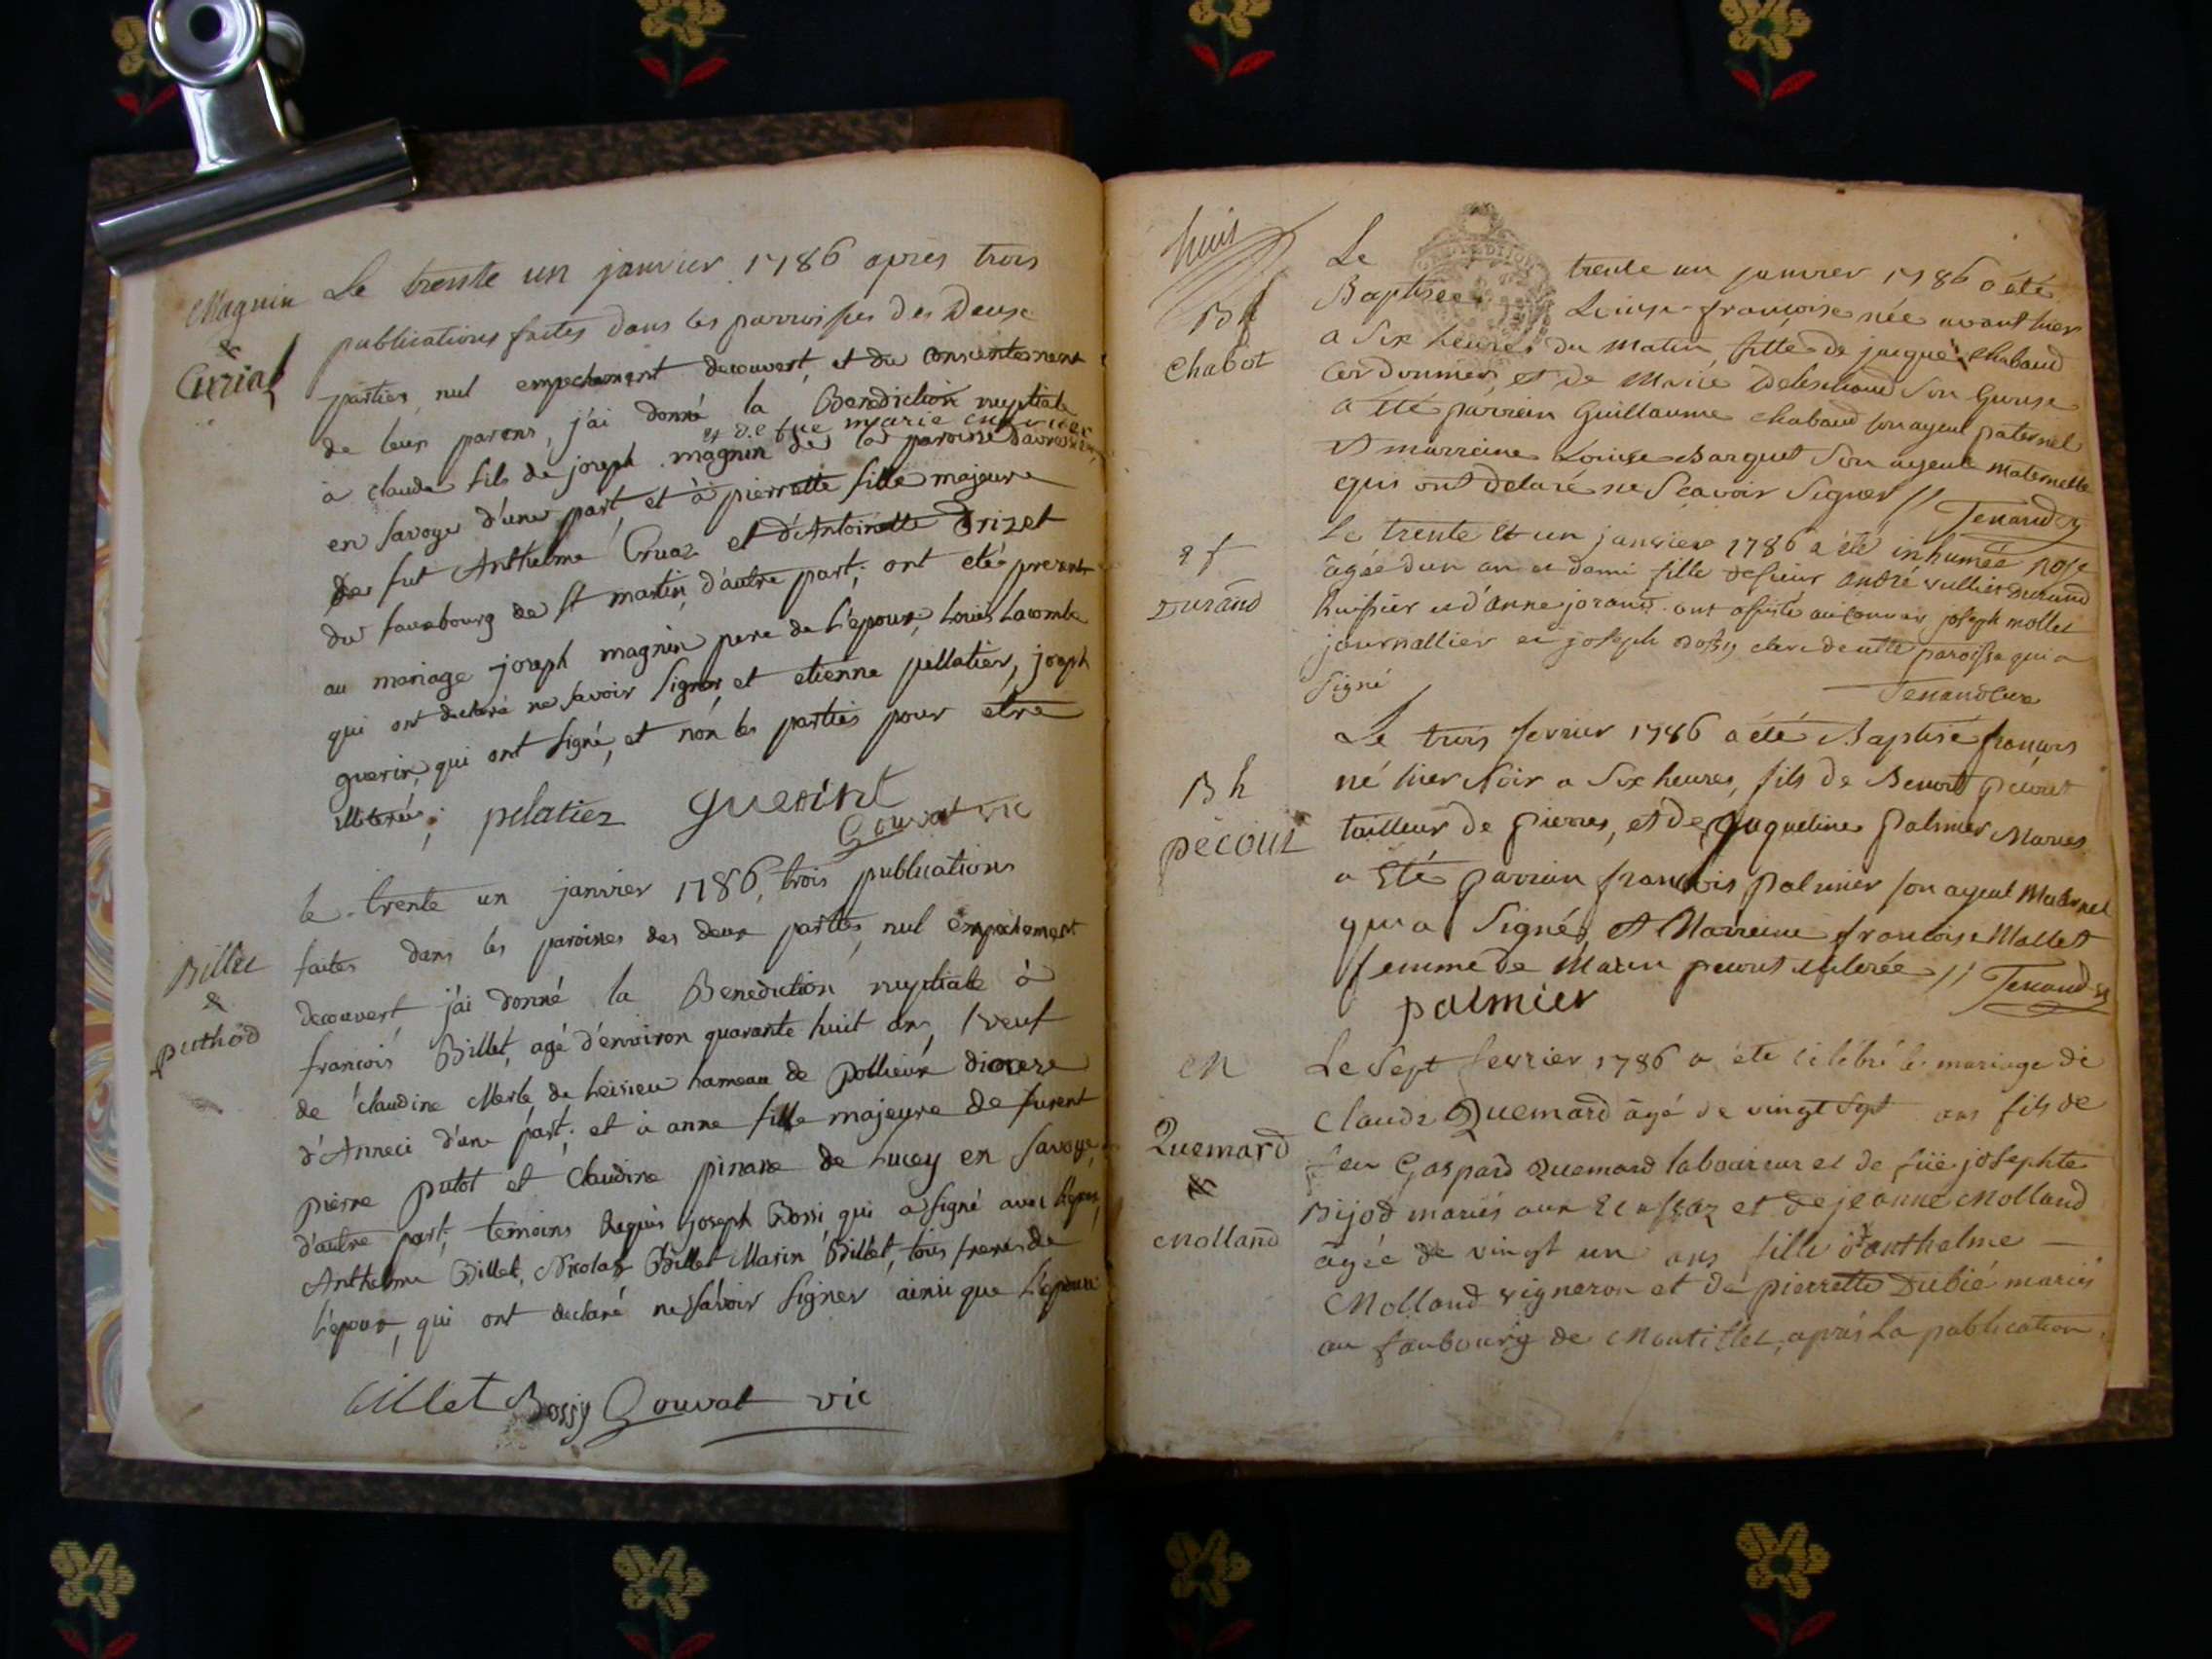 Magnin
&
Curial
Le trente un janvier 1786 apres trois
publications faites dans les parroisses des Deux
parties, nul empechement decouvert, et du consentement
de leur parens, j'ai donné la Benediction nuptiale
et de fue marie
à claude fils de joseph magnin de la paroisse
en savoye d'une part, et à pierrette fille majeure
de fut Anthelme et d'Antoinette Trizet
du fauxbourg de st martin, d'autre part; ont eté presents
au mariage joseph magnin pere de l'epoux, Louis Lacombe
qui ont declaré ne savoir signer, et etienne pellatier, joseph
guerin, qui ont signé, et non les parties pour etre
; pelatier guerint
Gouvat vic
Billet
&
puthod
le trente un janvier 1786, trois publications
faites dans les paroisses des deux parties, nul empechement
decouvert j'ai donné la Benediction nuptiale à
francois Billet, agé d'environ quarante huit ans, veuf
de claudine Merle de hameau de pollieux diocese
d'Anneci d'une part; et à anne fille majeure de furent
pierre putot et claudine de Lucey en savoye,
d'autre part; temoins Requis joseph Bossi qui a signé avec
Anthelme Billet, Nicolas Billet Marin Billet, tous freres de
l'epoux, qui ont declaré ne savoir signer ainsi que l'epouse
billet Bossy Gouvat vic
huit
B f
chabot
Le trente un janvier 1786 a été
Baptisée Louise-francoise née avant hier
a six heures du matin, fille de jacque chabaud
Cordonnier, et de Marie son epouse
a été parrein Guillaume chabaud son ayeul paternel
et marreine Louise Barquet son ayeule maternelle
qui ont declaré ne scavoir signer // Tenand
Durand
Le trente et un janvier 1786 a été inhumée rose
agée d'un an et demi fille de sieur andré vulliet durand
huissier et d'anne ont assisté au convoi joseph mollet
journallier et joseph bossy clerc de cette paroisse qui a
signé
Tenand cure
B h
pécout
Le trois fevrier 1786 a été Baptisé francois
né hier soir a six heures, fils de Benoit pécout
tailleur de pierres, et de jaqueline palmier Mariés
a été parrein francois palmier son ayeul Maternel
qui a signé, et Marreine francoise Mollet
femme de Marin pecout // Tenand
palmier
en
Quemard
&
Molland
Le sept fevrier 1786 a été célébré le mariage de
claude Quemard agé de vingt sept ans fils de
feu Gaspard Quemard laboureur et de füe josephte
Bijod mariés aux et de jeanne Molland
agée de vingt un ans fille d'anthelme
Molland vigneron et de pierrette Dubié mariés
au faubourg de , après la publication